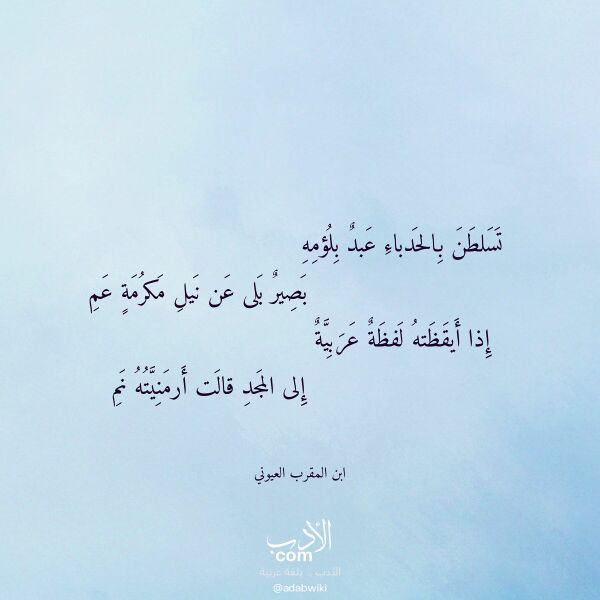 تَسَلطَنَ بِالحَدباءِ عَبدٌ بِلُؤمِهِ
بَصِيرٌ بَلى عَن نَيلِ مَكرُمَةٍ عَمِ
إِذا أَيقَظَتهُ لَفظَةٌ عَرَبِيَّةٌ
إِلى المَجدِ قالَت أَرمَنِيَّتُهُ نَمِ
ابن المقرب العيوني
الأدب
com
الأدب .. بلغة عربية
@adabwiki